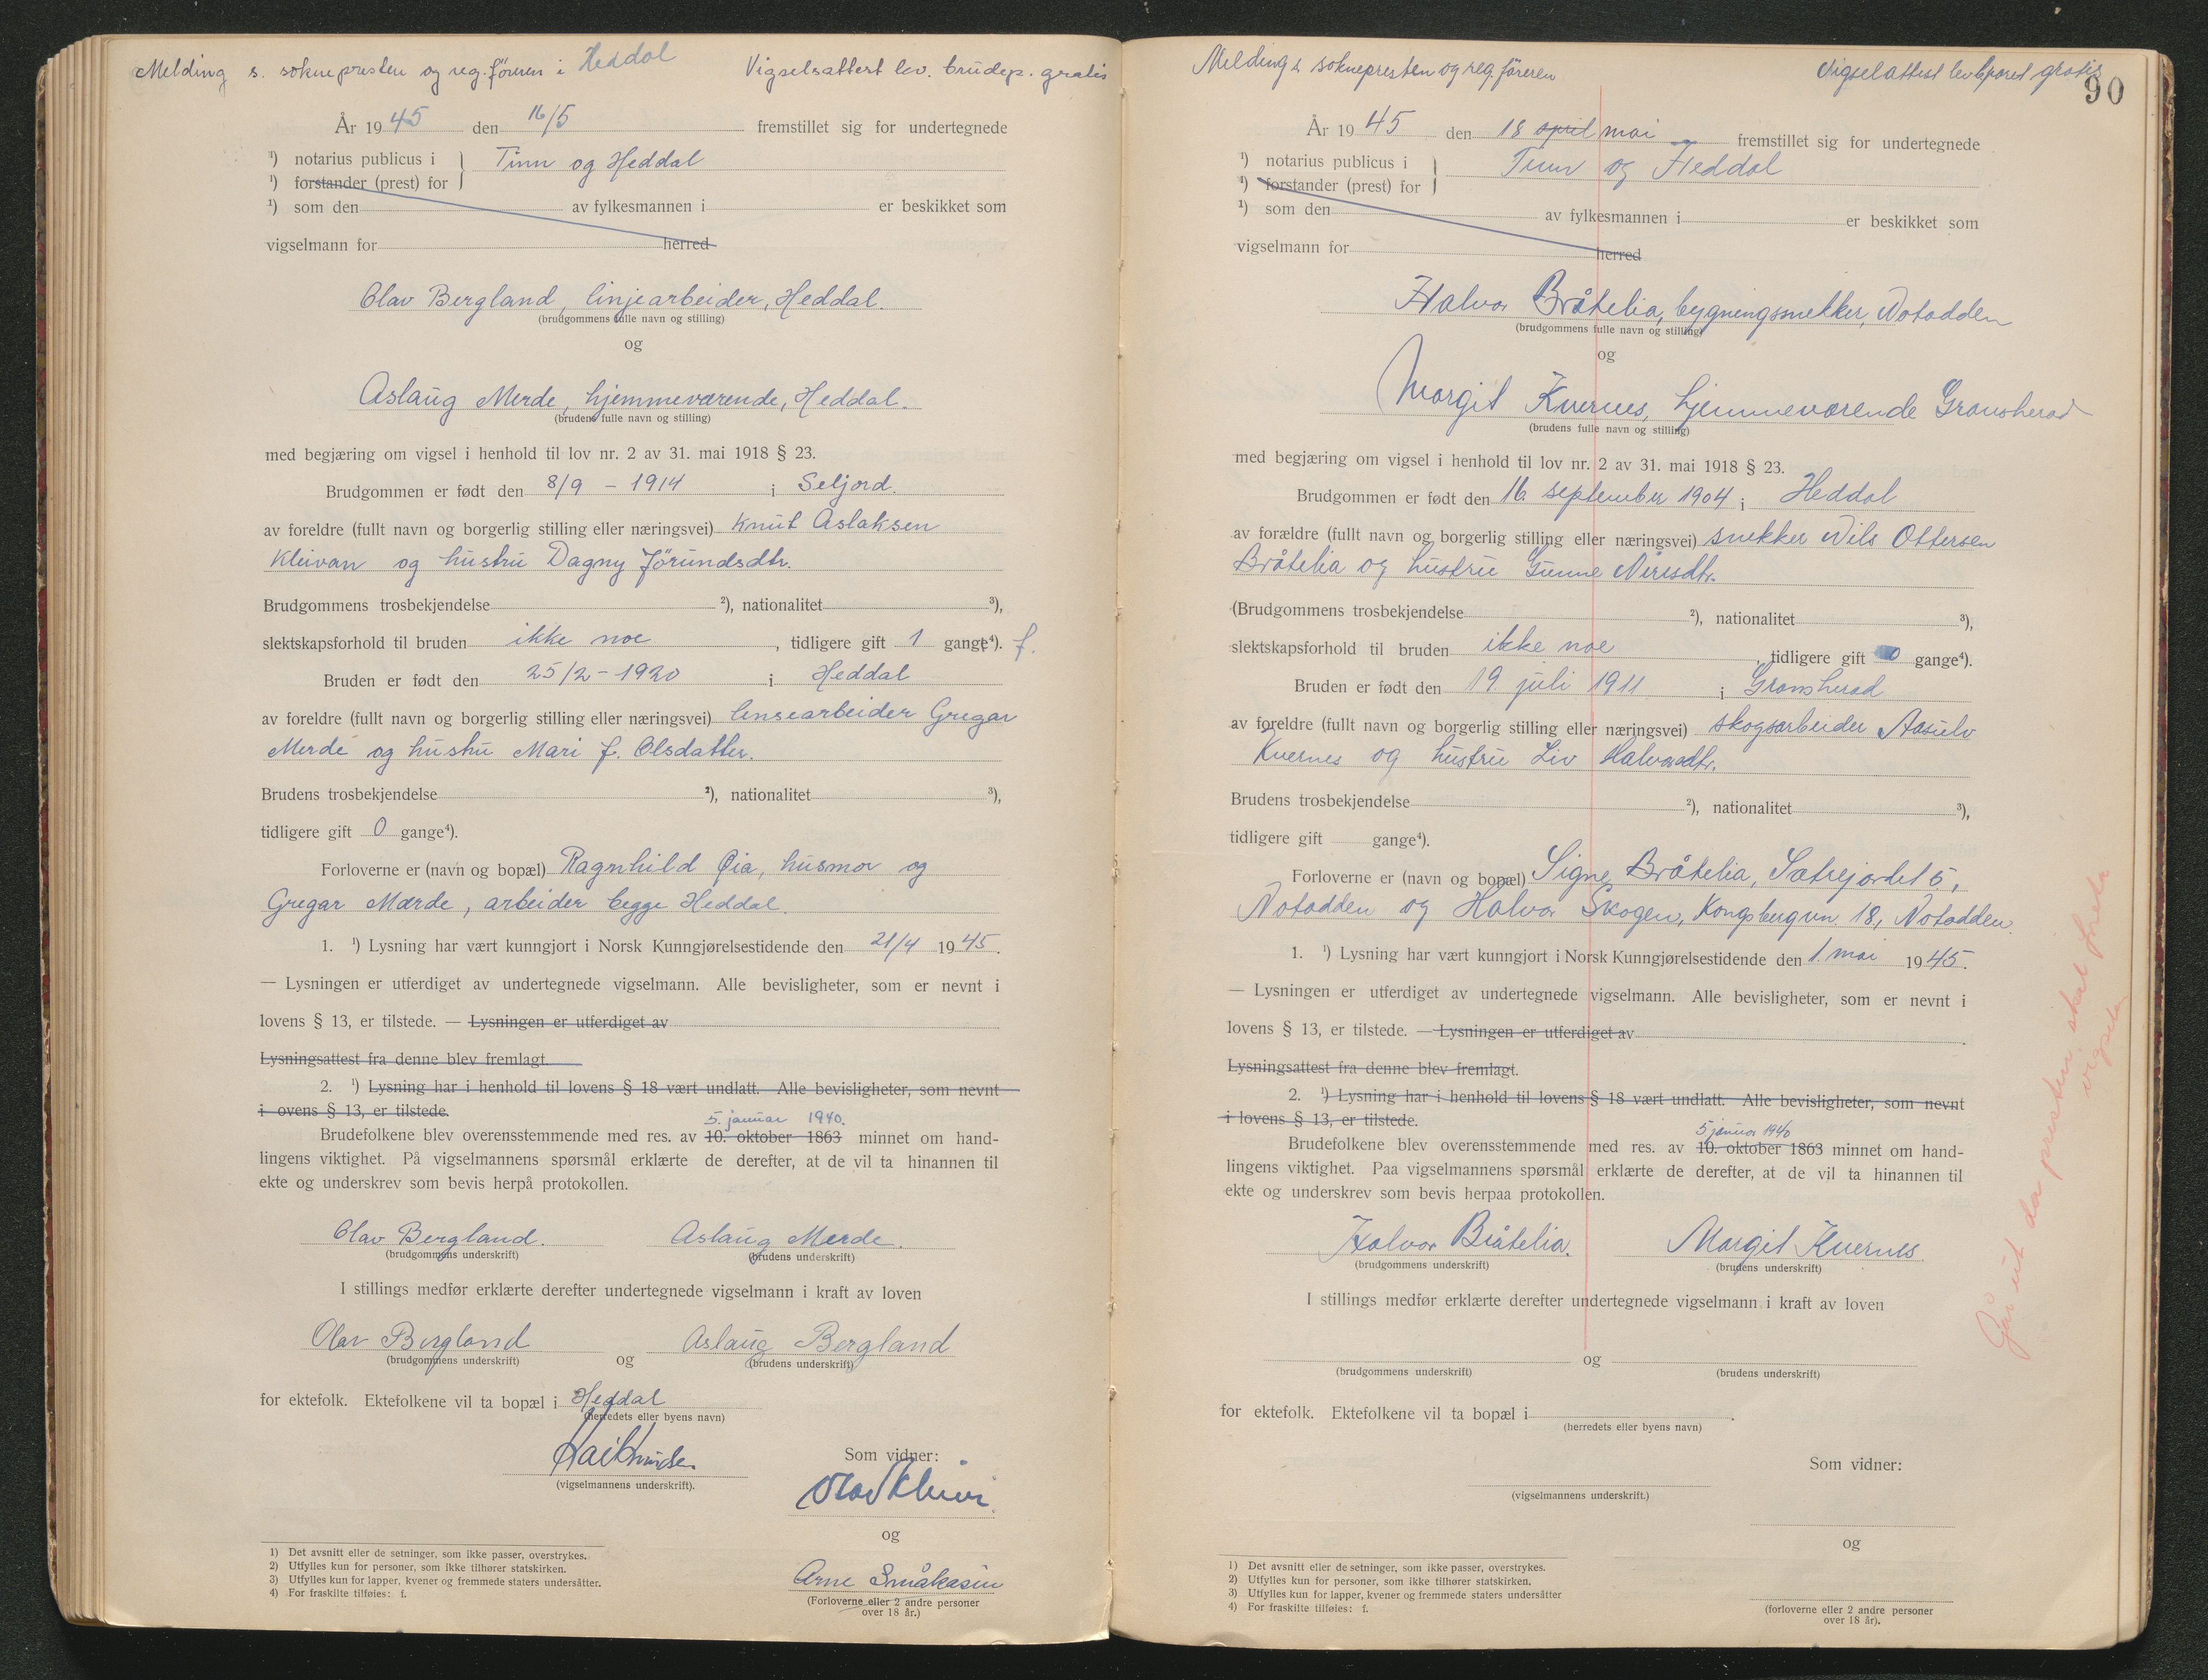 Melding s. soknepresten og reg. föreren i Heddal
Vigselsattest lev. brudep. gratis
År 1945 den 16/5 fremstillet sig for undertegnede
¹) notarius publicus i } Tinn og Heddal
¹) forstander (prest) for
¹) som den av fylkesmannen i er beskikket som
vigselmann for herred
Olav Bergland, linjearbeider, Heddal.
(brudgommens fulle navn og stilling)
og
Aslaug Merde, hjemmeværende, Heddal.
(brudens fulle navn og stilling)
med begjæring om vigsel i henhold til lov nr. 2 av 31. mai 1918 § 23.
Brudgommen er født den 8/9 - 1914 i Seljord.
av foreldre (fullt navn og borgerlig stilling eller næringsvei) Knut Aslaksen
Kleivan og hustru Dagny Jörundsdtr.
Brudgommens trosbekjendelse ²), nationalitet ³),
slektskapsforhold til bruden ikke noe, tidligere gift 1 gange⁴). f.
Bruden er født den 25/2 - 1920 i Heddal
av foreldre (fullt navn og borgerlig stilling eller næringsvei) lensearbeider Gregar
Merde og hustru Mari f. Olsdatter.
Brudens trosbekjendelse ²), nationalitet ³),
tidligere gift 0 gange⁴).
Forloverne er (navn og bopæl) Ragnhild Øia, husmor og
Gregar Mærde, arbeider begge Heddal.
1. ¹) Lysning har vært kunngjort i Norsk Kunngjørelsestidende den 21/4 1945.
— Lysningen er utferdiget av undertegnede vigselmann. Alle bevisligheter, som er nevnt i
lovens § 13, er tilstede. — Lysningen er utferdiget av
Lysningsattest fra denne blev fremlagt.
2. ¹) Lysning har i henhold til lovens § 18 vært undlatt. Alle bevisligheter, som nevnt
i ovens § 13, er tilstede.
5. januar 1940.
Brudefolkene blev overensstemmende med res. av 10. oktober 1863 minnet om hand-
lingens viktighet. På vigselmannens spørsmål erklærte de derefter, at de vil ta hinannen til
ekte og underskrev som bevis herpå protokollen.
Olav Bergland. Aslaug Merde.
(brudgommens underskrift) (brudens underskrift)
I stillings medfør erklærte derefter undertegnede vigselmann i kraft av loven
Olav Bergland og Aslaug Bergland
(brudgommens underskrift) (brudens underskrift)
for ektefolk. Ektefolkene vil ta bopæl i Heddal
(herredets eller byens navn)
(vigselmannens underskrift).
Som vidner:
og
Arne Småkasin
(Forloverne eller 2 andre personer
over 18 år.)
1) Det avsnitt eller de setninger, som ikke passer, overstrykes.
2) Utfylles kun for personer, som ikke tilhører statskirken.
3) Utfylles kun for lapper, kvener og fremmede staters undersåtter.
4) For fraskilte tilføies: f.
Melding s. soknepresten og reg. föreren
Vigselattest lev bparet gratis
90
År 1945 den 18 april mai fremstillet sig for undertegnede
¹) notarius publicus i } Tinn og Heddal
¹) forstander (prest) for
¹) som den av fylkesmannen i er beskikket som
vigselmann for herred
Halvor Bråtelia, bygningssnekker, Notodden
(brudgommens fulle navn og stilling)
og
Margit Kvernes, hjemmeværende Gransherad
(brudens fulle navn og stilling)
med begjæring om vigsel i henhold til lov nr. 2 av 31. mai 1918 § 23.
Brudgommen er født den 16. september 1904 i Heddal
av forældre (fullt navn og borgerlig stilling eller næringsvei) snekker Nils Ottersen
Bråtelia og hustru Gunne
(Brudgommens trosbekjendelse ²), nationalitet ³),
slektskapsforhold til bruden ikke noe, tidligere gift 0 gange⁴).
Bruden er født den 19. juli 1911 i Gransherad
av foreldre (fullt navn og borgerlig stilling eller næringsvei) skogsarbeider Aasulv
Kvernes og hustru Liv Halvorsdtr.
Brudens trosbekjendelse ²), nationalitet ³),
tidligere gift gange⁴).
Forloverne er (navn og bopæl) Signe Bråtelia, Sætrejordet 5,
Notodden og Halvor Skogen, Kongsbergvn. 18, Notodden.
1. ¹) Lysning har vært kunngjort i Norsk Kunngjørelsestidende den 1. mai 1945.
— Lysningen er utferdiget av undertegnede vigselmann. Alle bevisligheter, som er nevnt i
lovens § 13, er tilstede. — Lysningen er utferdiget av
Lysningsattest fra denne blev fremlagt.
2. ¹) Lysning har i henhold til lovens § 18 vært undlatt. Alle bevisligheter, som nevnt
i lovens § 13, er tilstede.
5 januar 1940
Brudefolkene blev overensstemmende med res. av 10. oktober 1863 minnet om hand-
lingens viktighet. Paa vigselmannens spørsmål erklærte de derefter, at de vil ta hinannen til
ekte og underskrev som bevis herpaa protokollen.
Halvor Bråtelia. Margit Kvernes.
(brudgommens underskrift) (brudens underskrift)
I stillings medfør erklærte derefter undertegnede vigselmann i kraft av loven
og
(brudgommens underskrift) (brudens underskrift)
for ektefolk. Ektefolkene vil ta bopæl i
(herredets eller byens navn)
Som vidner:
(vigselmannens underskrift.)
og
(forloverne eller 2 andre personer
over 18 år).
1) Det avsnitt eller de setninger, som ikke passer, overstrykes.
2) Utfylles kun for personer, som ikke tilhører statskirken.
3) Utfylles kun for lapper, kvener og fremmede staters undersåtter
4) For fraskilte tilføies: f.
Går ut da presten skal foreta
vigselen